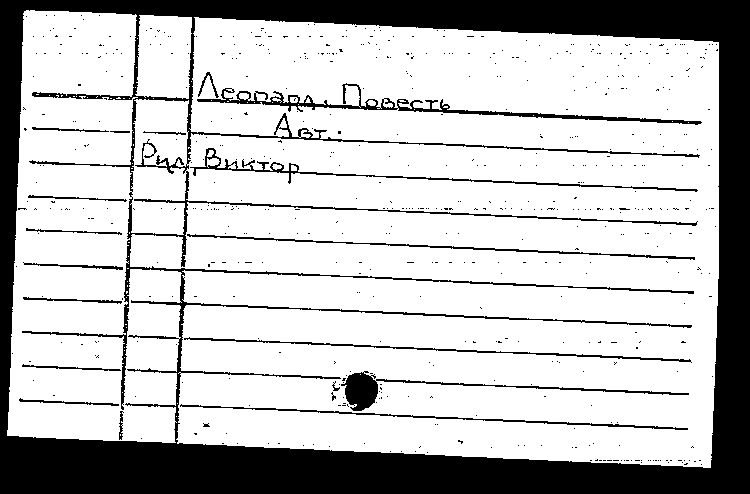 Леопард. Повесть
Авт.:
Рид, Виктор